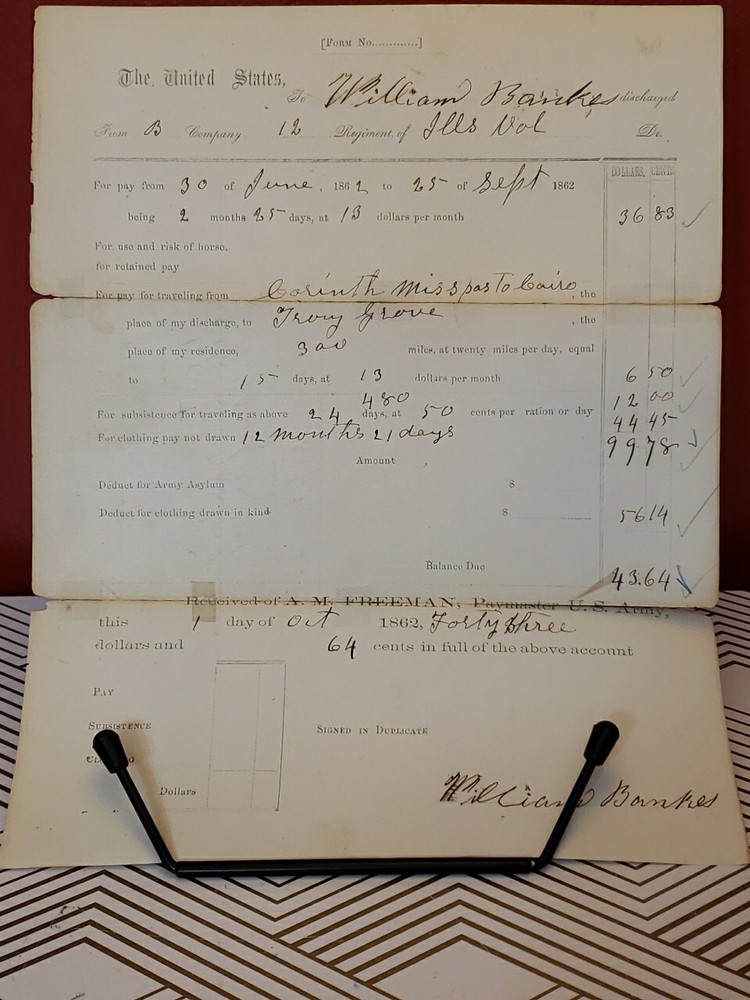 [Form No.............]
The United States,
To William Bankes discharged
From B Company 12 Regiment, of Ills Vol Dr.
DOLLARS, CENTS
For pay from 30 of June, 1862 to 25 of Sept 1862
being 2 months 25 days, at 13 dollars per month 36 83
For use and risk of horse,
for retained pay
For pay for traveling from Corinth Miss pas To Cairo, the
place of my discharge, to Irony Grove, the
place of my residence, 300 miles, at twenty miles per day, equal
to 15 days, at 13 dollars per month 6 50
480 12 00
For subsistence for traveling as above 24 days, at 50 cents per ration or day 44 45
For clothing pay not drawn 12 months 21 days 99 78
Amount
Deduct for Army Asylum $
Deduct for clothing drawn in kind $ 56 14
Balance Due 43.64
Received of A. M. FREEMAN, Paymaster U. S. Army,
this 1 day of Oct 1862, Forty three
dollars and 64 cents in full of the above account
Pay
Subsistence
Signed in Duplicate
Dollars
William Bankes